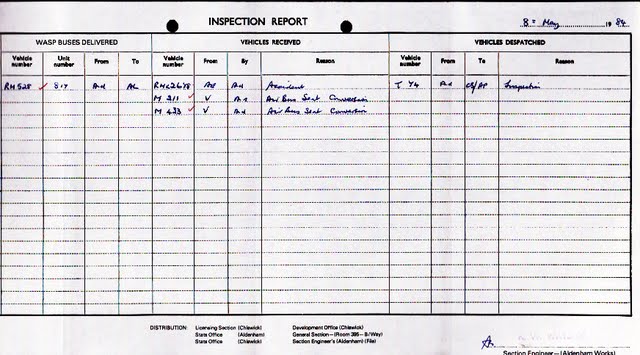 INSPECTION REPORT
8th May 19 84
WASP BUSES DELIVERED VEHICLES RECEIVED VEHICLES DESPATCHED
Vehicle number Unit number From To Vehicle number From By Reason Vehicle number From To Reason
RM 528 Ad AL RML2678 Ad Accident T 74 Ad Inspection
M 311 V Air Bus Seat Conversion
M 433 V Ad Air Bus Seat Conversion
DISTRIBUTION: Licensing Section (Chiswick) Development Office (Chiswick)
State Office (Aldenham) General Section—(Room 395—B/Way)
State Office (Chiswick) Section Engineer's (Aldenham) (File)
Section Engineer—(Aldenham Works)